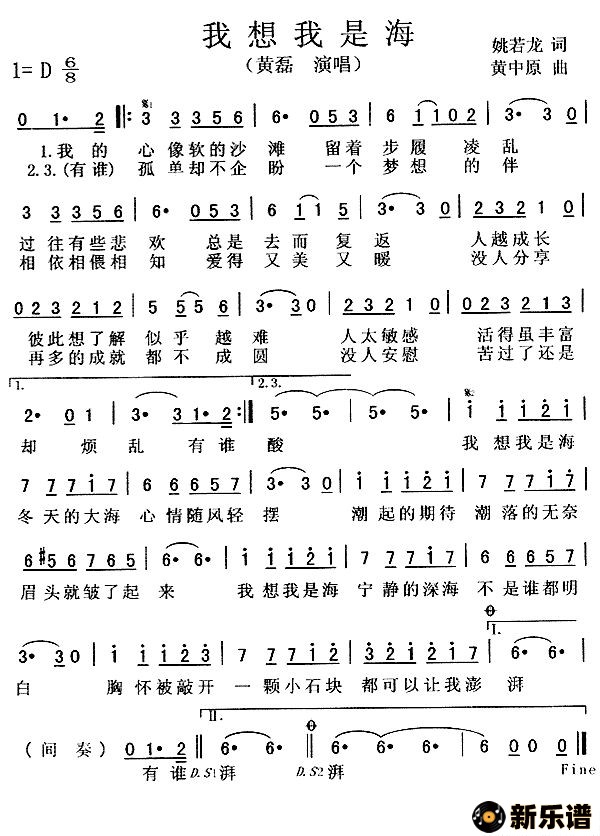 我想我是海
1=D 6/8
（黄磊 演唱）
姚若龙 词
黄中原 曲
0 1• 2 ‖: 3 3356 | 6• 053 | 6 1102 | 3• 30 |
1.我的 心像软的沙滩 留着步履凌乱
2.3.(有谁) 孤单却不企盼 一个梦想的伴
3 3356 | 6• 053 | 6 11 5 | 3• 30 | 023210 |
过往有些悲欢 总是去而复返 人越成长
相依相偎相知 爱得又美又暖 没人分享
023212 | 5 556 | 3• 30 | 023210 | 023212 |
彼此想了解似乎越难 人太敏感 活得虽丰富
再多的成就都不成圆 没人安慰 苦过了还是
1. 2.3.
2• 01 | 3• 31•2 :‖ 5• 5• | 5• 5• | 1 1121 |
却烦乱有谁酸 我想我是海
7 7717 | 6 6657 | 3• 30 | 1 1121 | 7 7717 |
冬天的大海 心情随风轻摆 潮起的期待 潮落的无奈
6#56765 | 6• 6• | 1 1121 | 7 7717 | 6 6657 |
眉头就皱了起来 我想我是海 宁静的深海 不是谁都明
I.
3• 30 | 1 1123 | 7 7712 | 121217 | 6• 6• |
白 胸怀被敲开 一颗小石块 都可以让我澎湃
II.
（间奏） 01•2 ‖ 6• 6• ‖ 6• 6• | 6 00 | 0 0 ‖
有谁D.S1湃 D.S2湃 Fine
新乐谱